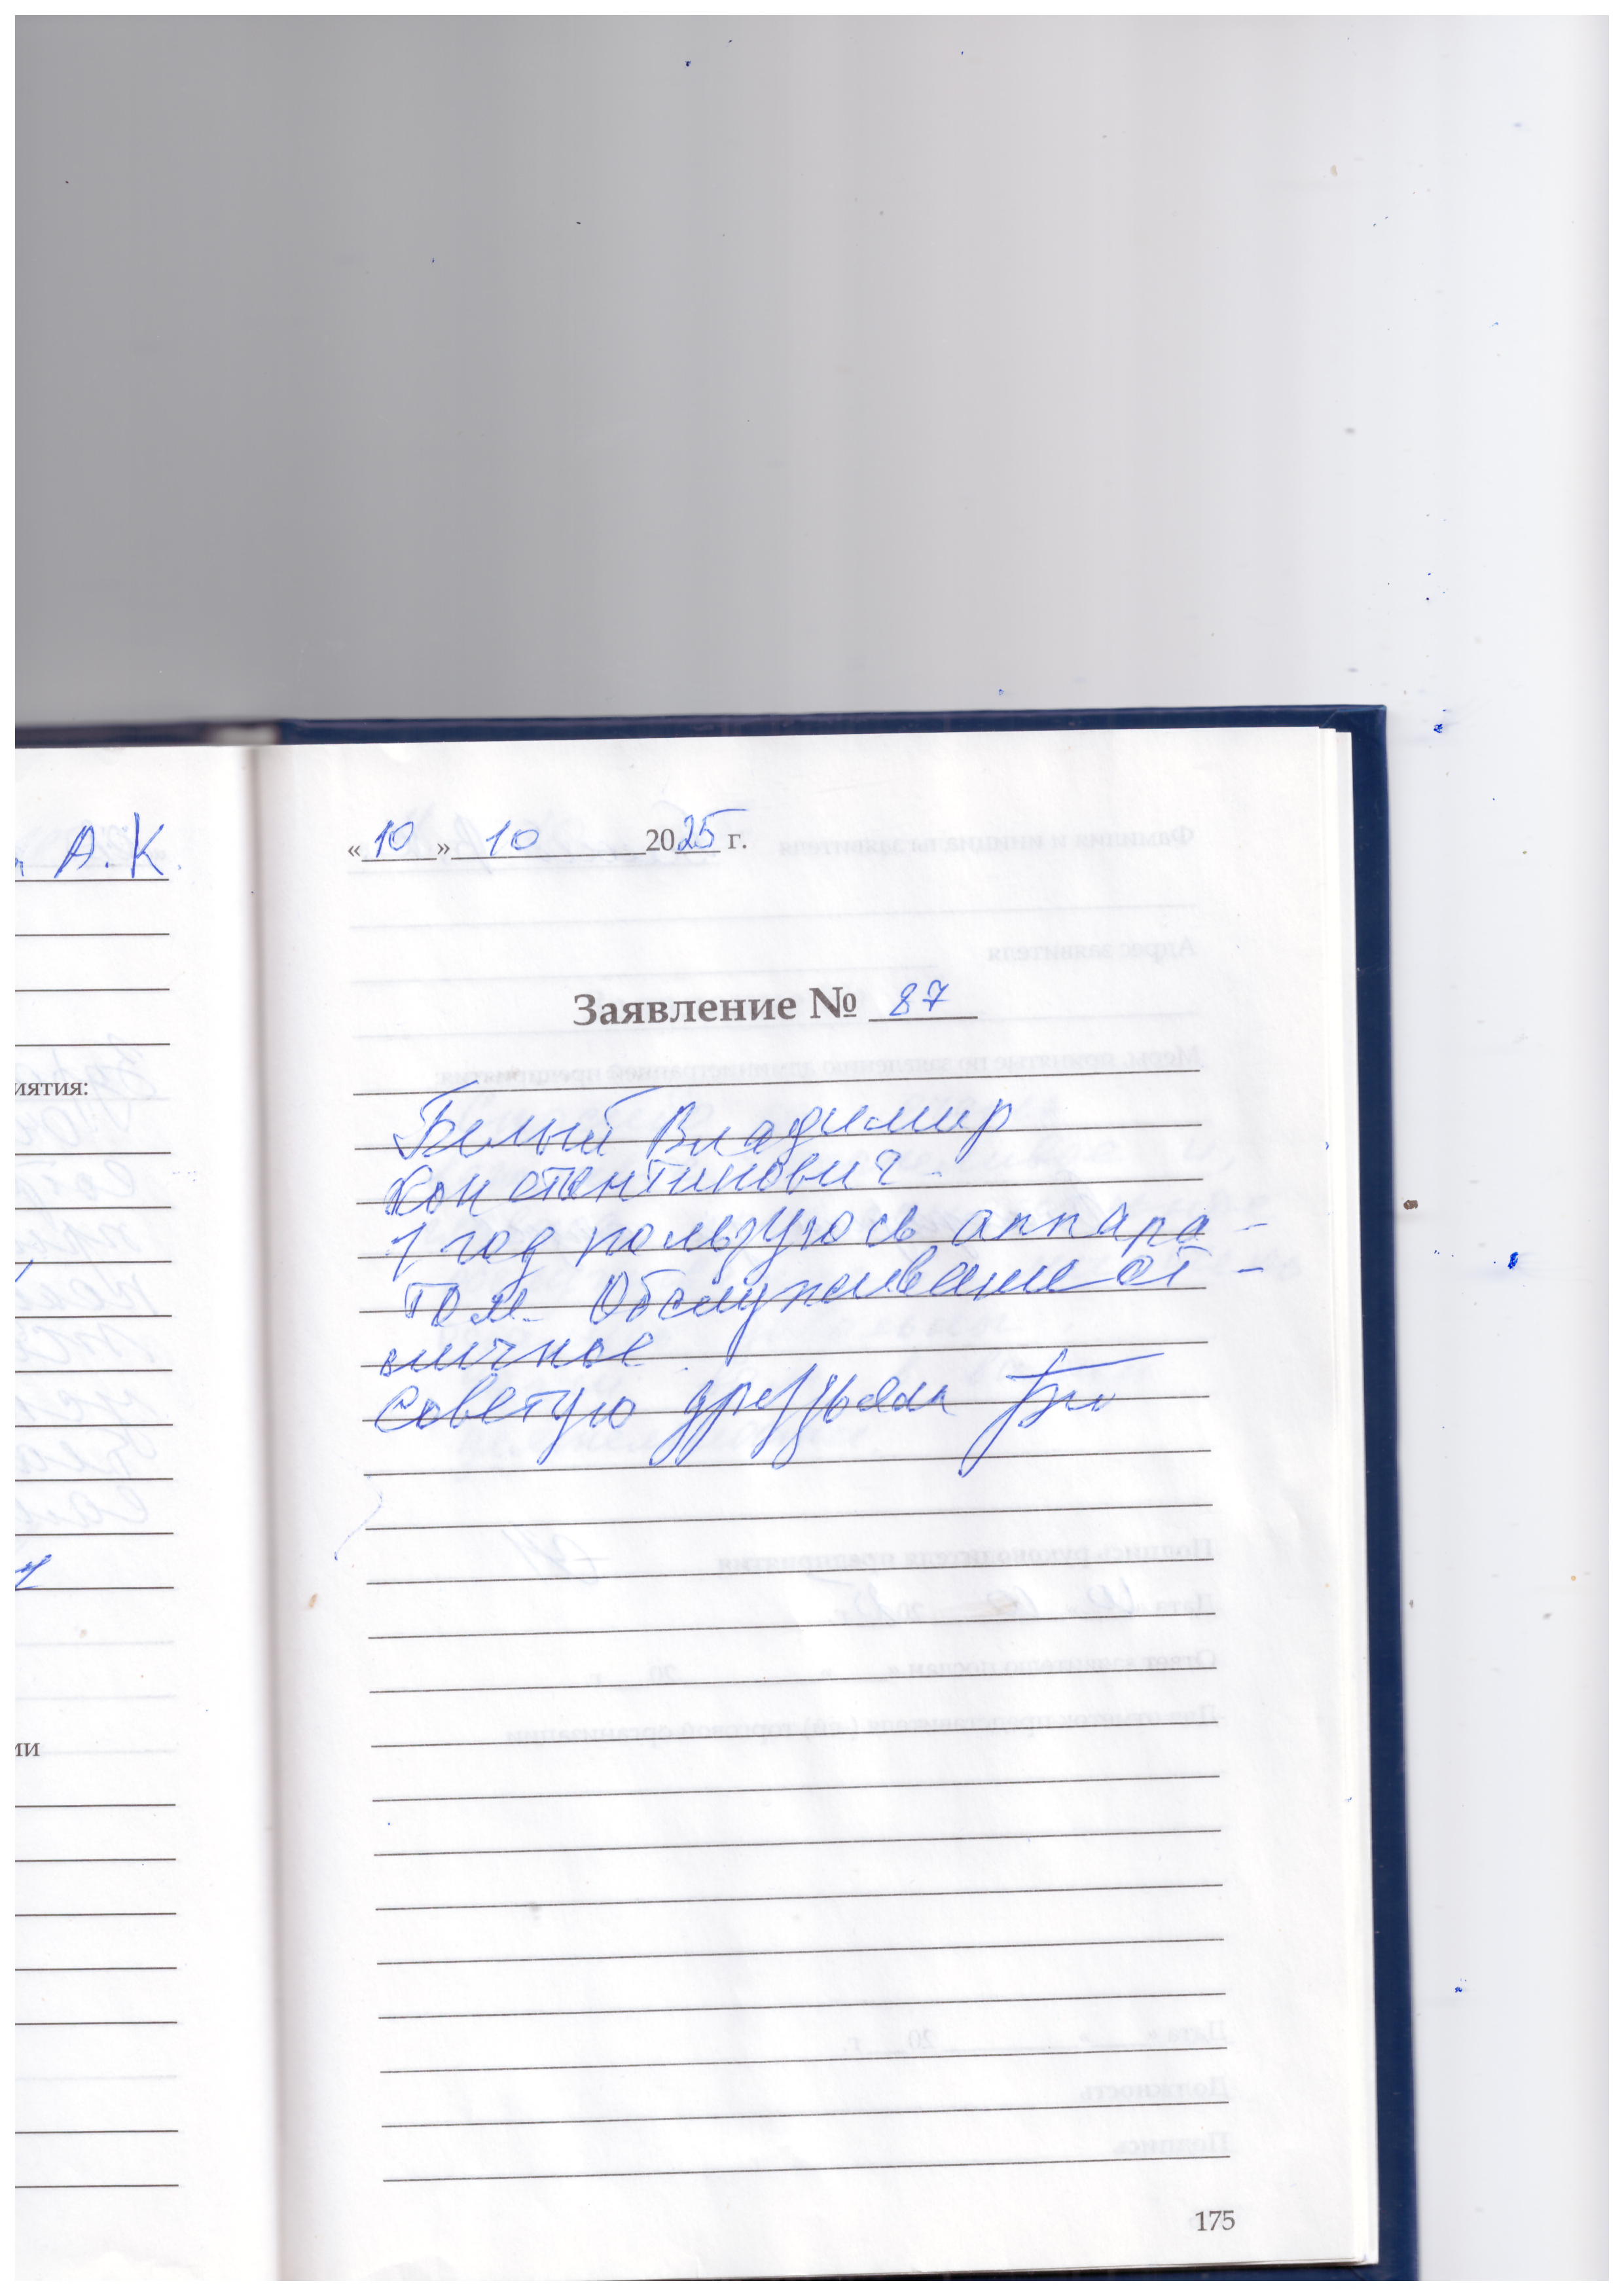 А.К.
иятия:
ии
«10» 10 2025 г.
Заявление № 87
Белый Владимир
Константинович -
1 год пользуюсь аппара -
том. Обслуживание от -
личное.
Советую друзьям
175